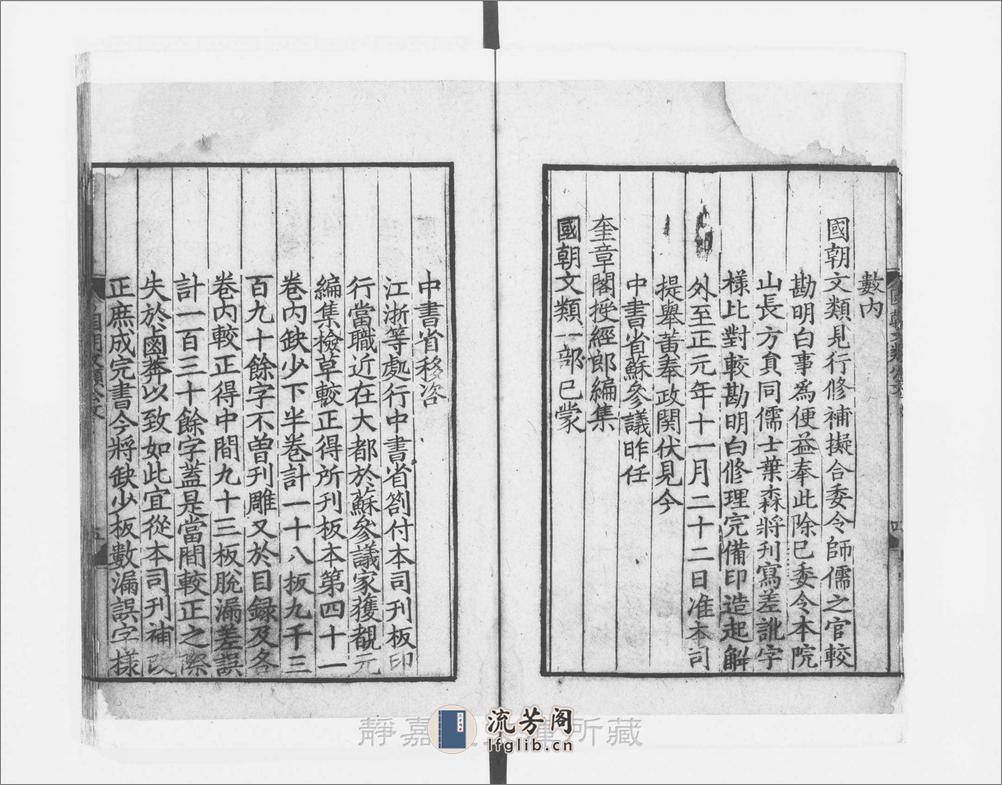 數內
國朝文類見行修補擬合委令師儒之官較
勘明白事爲便益奉此除已委令本院
山長方員同儒士葉森將刊寫差訛字
樣比對較勘明白修理完備印造起解
外至正元年十一月二十二日准本司
提舉黃奉政關伏見今
中書省蘇參議昨任
奎章閣授經郎編集
國朝文類一部已蒙
中書省移咨
江浙等處行中書省劄付本司刊板印
行當職近在大都於蘇參議家獲覩元
編集檢草較正得所刊板本第四十一
卷內缺少下半卷計一十八板九千三
百九十餘字不曾刊雕又於目錄及各
卷內較正得中間九十三板脫漏差誤
計一百三十餘字蓋是當間較正之際
失於鹵莽以致如此宜從本司刊補改
正庶成完書今將缺少板數漏誤字樣
靜嘉 所藏
流芳阁
lfglib.cn